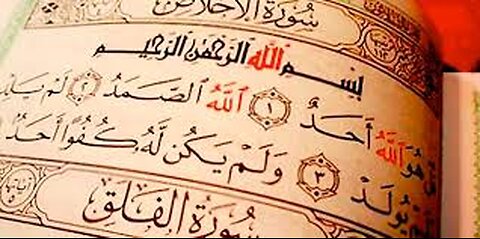 سُورَةُ الْإِخْلَاصِ
بِسْمِ ٱللَّهِ ٱلرَّحْمَٰنِ ٱلرَّحِيمِ
هُوَ ٱللَّهُ أَحَدٌ ١ ٱللَّهُ ٱلصَّمَدُ ٢ لَمْ يَلِدْ
يُولَدْ ٣ وَلَمْ يَكُن لَّهُۥ كُفُوًا أَحَدٌ
سُورَةُ الْفَلَقِ